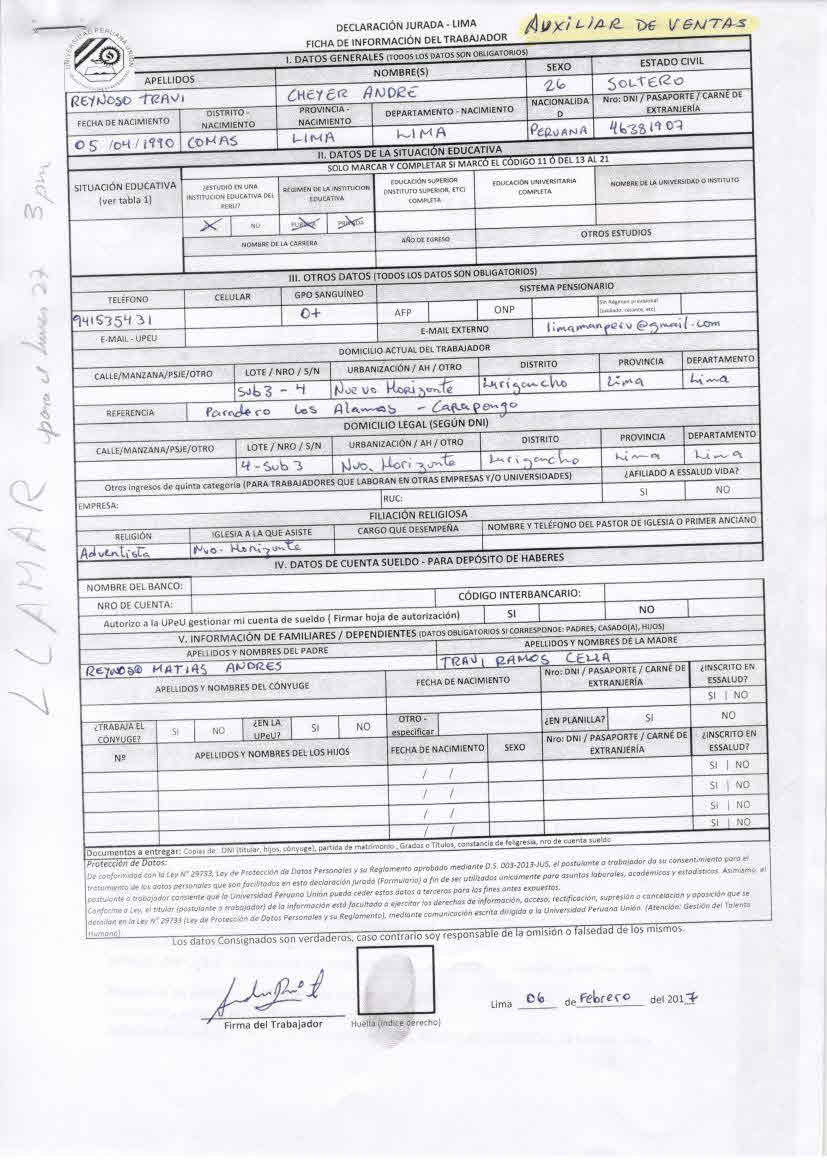 DECLARACIÓN JURADA - LIMA
AUXILIAR DE VENTAS
FICHA DE INFORMACIÓN DEL TRABAJADOR
UNIVERSIDAD PERUANA UNION
I. DATOS GENERALES (TODOS LOS DATOS SON OBLIGATORIOS)
APELLIDOS NOMBRE(S) SEXO ESTADO CIVIL
REYNOSO TRAVI CHEYER ANDRE 26 SOLTERO
FECHA DE NACIMIENTO DISTRITO - NACIMIENTO PROVINCIA - NACIMIENTO DEPARTAMENTO - NACIMIENTO NACIONALIDAD Nro: DNI / PASAPORTE / CARNÉ DE EXTRANJERÍA
05 /04/1990 COMAS LIMA LIMA PERUANA 46381907
II. DATOS DE LA SITUACIÓN EDUCATIVA
SOLO MARCAR Y COMPLETAR SI MARCÓ EL CÓDIGO 11 Ó DEL 13 AL 21
SITUACIÓN EDUCATIVA (ver tabla 1) ¿ESTUDIÓ EN UNA INSTITUCION EDUCATIVA DEL PERU? RÉGIMEN DE LA INSTITUCION EDUCATIVA EDUCACIÓN SUPERIOR (INSTITUTO SUPERIOR, ETC) COMPLETA EDUCACIÓN UNIVERSITARIA COMPLETA NOMBRE DE LA UNIVERSIDAD O INSTITUTO
NO PUBLICA PRIVADA
NOMBRE DE LA CARRERA AÑO DE EGRESO OTROS ESTUDIOS
III. OTROS DATOS (TODOS LOS DATOS SON OBLIGATORIOS)
TELÉFONO CELULAR GPO SANGUÍNEO SISTEMA PENSIONARIO
941535431 O+ AFP ONP Sin Régimen previsional (jubilado, cesante, etc)
E-MAIL - UPEU E-MAIL EXTERNO limamanperu@gmail.com
DOMICILIO ACTUAL DEL TRABAJADOR
CALLE/MANZANA/PSJE/OTRO LOTE / NRO / S/N URBANIZACIÓN / AH / OTRO DISTRITO PROVINCIA DEPARTAMENTO
Sub3 - 4 Nuevo Horizonte Lurigancho Lima Lima
REFERENCIA Paradero Los Alamos - Carapongo
DOMICILIO LEGAL (SEGÚN DNI)
CALLE/MANZANA/PSJE/OTRO LOTE / NRO / S/N URBANIZACIÓN / AH / OTRO DISTRITO PROVINCIA DEPARTAMENTO
4-Sub 3 Nvo. Horizonte Lurigancho Lima Lima
Otros ingresos de quinta categoría (PARA TRABAJADORES QUE LABORAN EN OTRAS EMPRESAS Y/O UNIVERSIDADES) ¿AFILIADO A ESSALUD VIDA?
EMPRESA: RUC: SI NO
FILIACIÓN RELIGIOSA
RELIGIÓN IGLESIA A LA QUE ASISTE CARGO QUE DESEMPEÑA NOMBRE Y TELÉFONO DEL PASTOR DE IGLESIA O PRIMER ANCIANO
Adventista Nvo. Horizonte
IV. DATOS DE CUENTA SUELDO - PARA DEPÓSITO DE HABERES
NOMBRE DEL BANCO:
NRO DE CUENTA: CÓDIGO INTERBANCARIO:
Autorizo a la UPeU gestionar mi cuenta de sueldo ( Firmar hoja de autorización) SI NO
V. INFORMACIÓN DE FAMILIARES / DEPENDIENTES (DATOS OBLIGATORIOS SI CORRESPONDE: PADRES, CASADO(A), HIJOS)
APELLIDOS Y NOMBRES DEL PADRE APELLIDOS Y NOMBRES DE LA MADRE
REYNOSO MATIAS ANDRES TRAVI RAMOS CELIA
APELLIDOS Y NOMBRES DEL CÓNYUGE FECHA DE NACIMIENTO Nro: DNI / PASAPORTE / CARNÉ DE EXTRANJERÍA ¿INSCRITO EN ESSALUD?
SI | NO
¿TRABAJA EL CÓNYUGE? SI NO ¿EN LA UPeU? SI NO OTRO - especificar ¿EN PLANILLA? SI NO
Nº APELLIDOS Y NOMBRES DEL LOS HIJOS FECHA DE NACIMIENTO SEXO Nro: DNI / PASAPORTE / CARNÉ DE EXTRANJERÍA ¿INSCRITO EN ESSALUD?
/ / SI | NO
/ / SI | NO
/ / SI | NO
/ / SI | NO
Documentos a entregar: Copias de: DNI (titular, hijos, cónyuge), partida de matrimonio , Grados o Títulos, constancia de feligresia, nro de cuenta sueldo
Protección de Datos:
De conformidad con la Ley N° 29733, Ley de Protección de Datos Personales y su Reglamento aprobado mediante D.S. 003-2013-JUS, el postulante a trabajador da su consentimiento para el
tratamiento de los datos personales que son facilitados en esta declaración jurada (Formulario) a fin de ser utilizados únicamente para asuntos laborales, académicos y estadísticos. Asimismo, el
postulante a trabajador consiente que la Universidad Peruana Unión pueda ceder estos datos a terceros para los fines antes expuestos.
Conforme a Ley, el titular (postulante a trabajador) de la información está facultado a ejercitar los derechos de información, acceso, rectificación, supresión o cancelación y oposición que se
detallan en la Ley N° 29733 (Ley de Protección de Datos Personales y su Reglamento), mediante comunicación escrita dirigida a la Universidad Peruana Unión. (Atención: Gestión del Talento
Humano)
Los datos Consignados son verdaderos, caso contrario soy responsable de la omisión o falsedad de los mismos.
Lima 06 de Febrero del 2017
Firma del Trabajador Huella (índice derecho)
LLAMAR para el lunes 27 3 pm